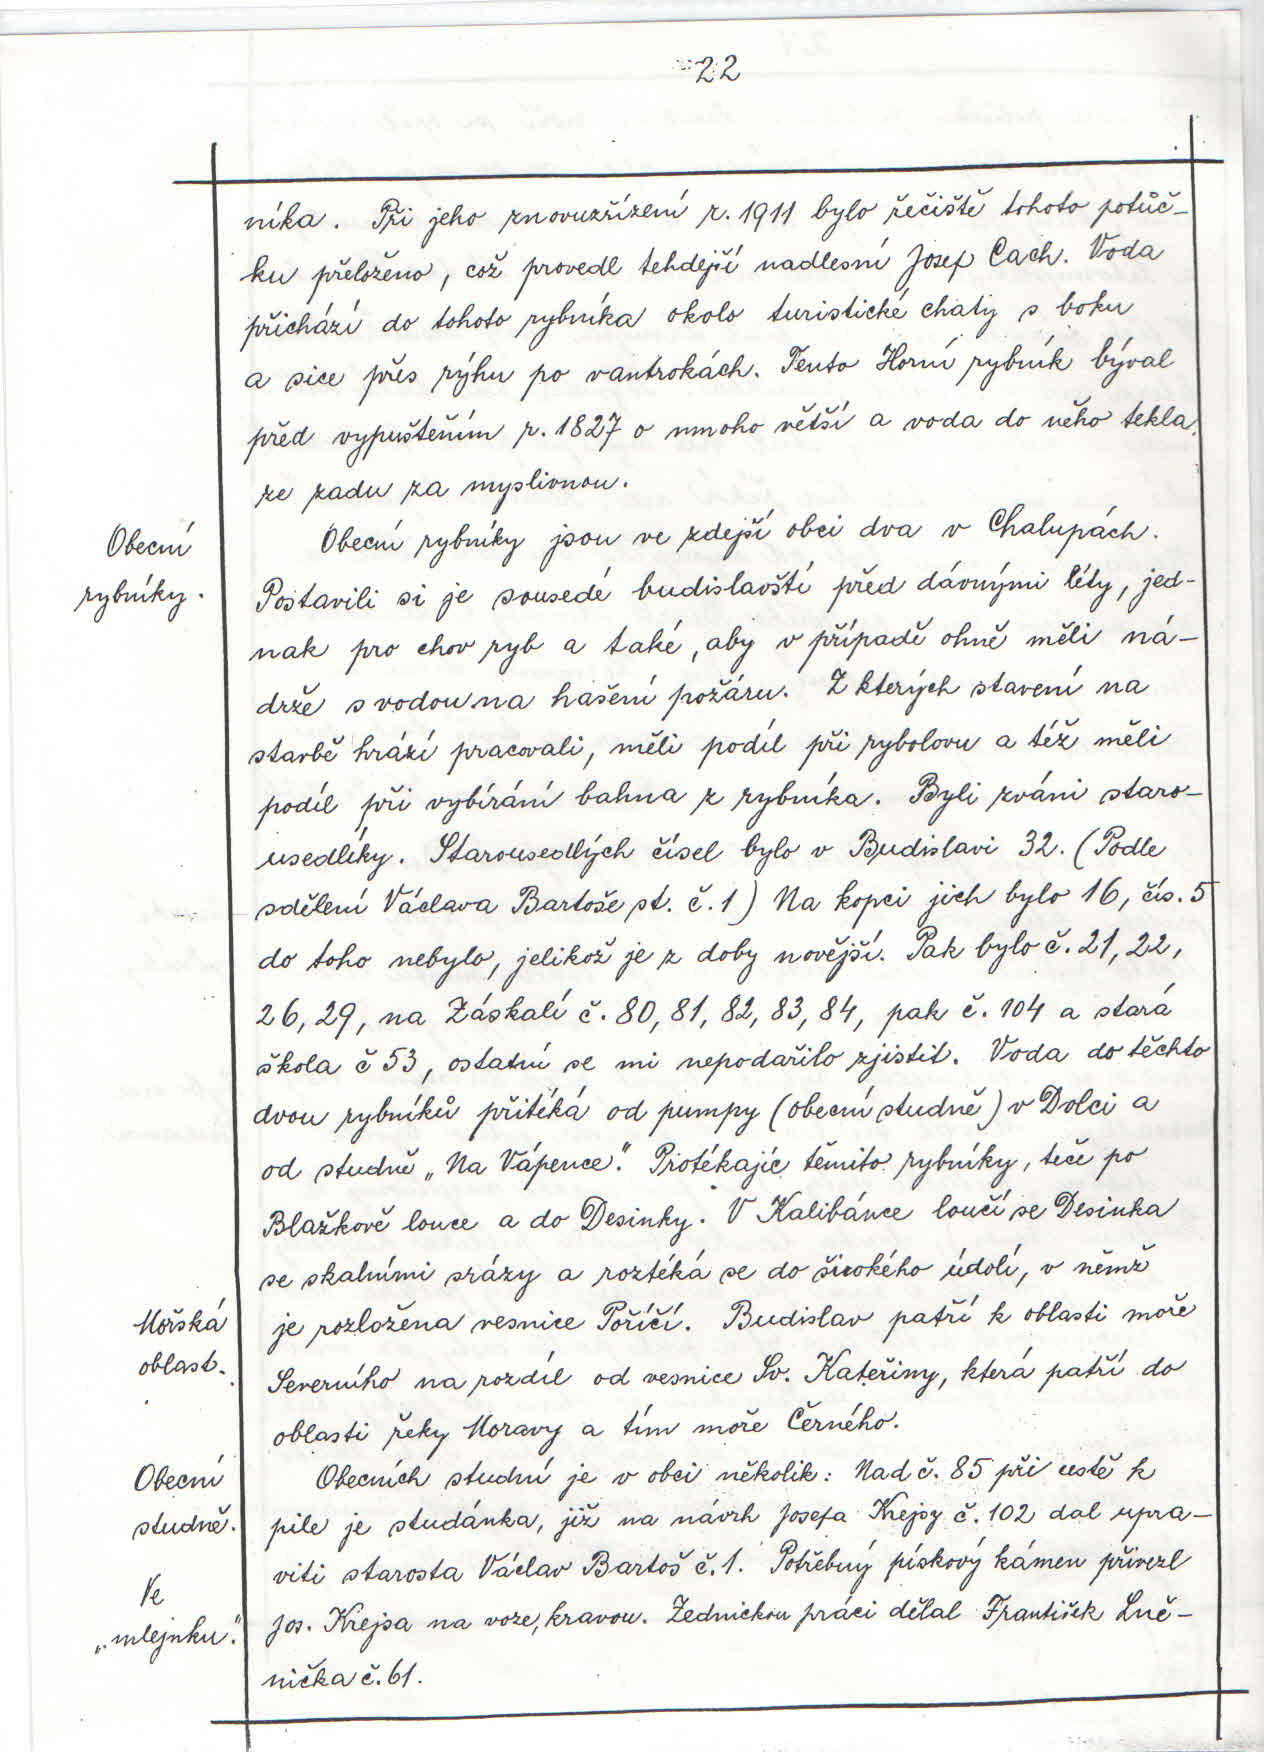 22
níka. Při jeho znovuzřízení r. 1911 bylo řečiště tohoto potůč-
ku přeloženo, což provedl tehdejší nadlesní Josef Cach. Voda
přichází do tohoto rybníka okolo turistické chaty s boku
a sice přes rýhu po vantrokách. Tento Horní rybník býval
před vypuštěním r. 1827 o mnoho větší a voda do něho tekla
ze zadu za myslivnou.
Obecní
rybníky.
Obecní rybníky jsou ve zdejší obci dva v Chalupách.
Postavili si je sousedé budislavští před dávnými léty, jed-
nak pro chov ryb a také, aby v případě ohně měli ná-
drže s vodou na hašení požáru. Z kterých stavení na
stavbě hrází pracovali, měli podíl při rybolovu a též měli
podíl při vybírání bahna z rybníka. Byli zváni staro-
usedlíky. Starousedlých čísel bylo v Budislavi 32. (Podle
sdělení Václava Bartoše st. č. 1) Na kopci jich bylo 16, čís. 5
do toho nebylo, jelikož je z doby novější. Pak bylo č. 21, 22,
26, 29, na Záskalí č. 80, 81, 82, 83, 84, pak č. 104 a stará
škola č 53, ostatní se mi nepodařilo zjistit. Voda do těchto
dvou rybníků přitéká od pumpy (obecní studně) v Dolci a
od studně „Na Vápence". Protékajíc těmito rybníky, teče po
Blažkově louce a do Desinky. V Kalibánce loučí se Desinka
se skalními srázy a roztéká se do širokého údolí, v němž
Mořská
oblast.
je rozložena vesnice Poříčí. Budislav patří k oblasti moře
Severního na rozdíl od vesnice Sv. Kateřiny, která patří do
oblasti řeky Moravy a tím moře Černého.
Obecní
studně.
Obecních studní je v obci několik: Nad č. 85 při cestě k
pile je studánka, již na návrh Josefa Krejsy č. 102 dal upra-
viti starosta Václav Bartoš č. 1. Potřebný pískový kámen přivezl
Ve
„mlejnku".
Jos. Krejsa na voze, kravou. Zednickou práci dělal František Luč-
nička č. 61.